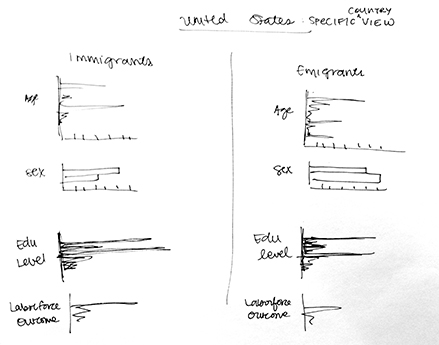 United States. SPECIFIC COUNTRY VIEW
Immigrants
Age
Sex
Edu
Level
Laborforce
Outcome
Emigrants
Age
Sex
Edu
level
Laborforce
Outcome